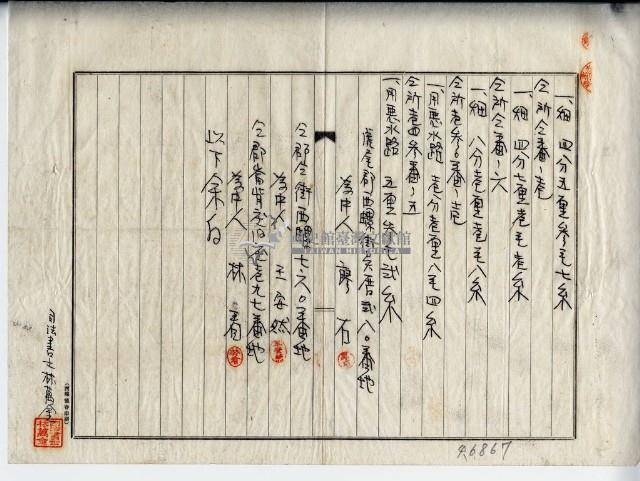 一、畑 四分五厘参毛七糸
仝所仝番ノ壱
一、畑 四分七厘壱毛壱糸
仝所仝番ノ六
一、畑 八分壱厘壱毛八糸
仝所壱参〇番ノ壱
一、用悪水路 壱分壱厘八毛四糸
仝所壱四参番ノ五
一、用悪水路 五厘参毛弍糸
虎尾郡西螺街吳厝弍八〇番地
為中人 廖 石
仝郡仝街西螺七六〇番地
為中人 王安然
仝郡崙背庄 壱九七番地
為中人 林 看
以下余白
司法書士林萬全
臺灣文獻館
TAIWAN HISTORICA
久6867